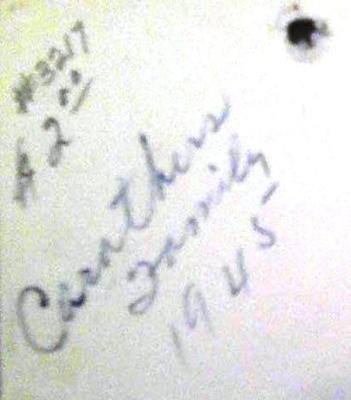 #3217
$2.00
Carothers
Family
1945